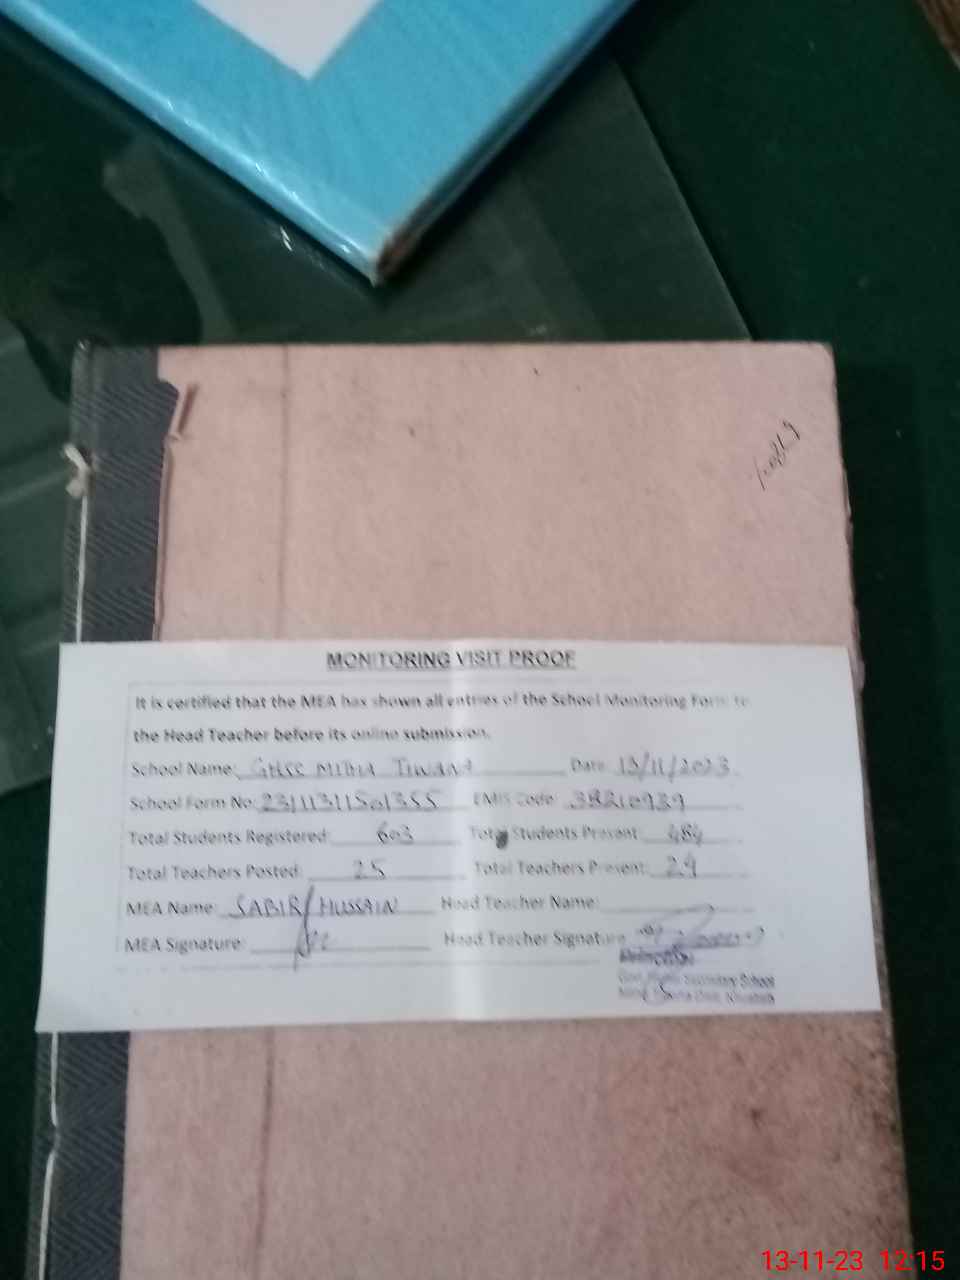 MONITORING VISIT PROOF
It is certified that the MEA has shown all entries of the School Monitoring Form to
the Head Teacher before its online submission.
School Name: GHSS MITHA TIWANA Date: 13/11/2023
School Form No: 23111311501355 EMIS Code: 38210939
Total Students Registered: 603 Total Students Present: 484
Total Teachers Posted: 25 Total Teachers Present: 24
MEA Name: SABIR HUSSAIN Head Teacher Name:
MEA Signature: Head Teacher Signature
Principal
Govt. Higher Secondary School
Mitha Tiwana Distt. Khushab
13-11-23 12:15